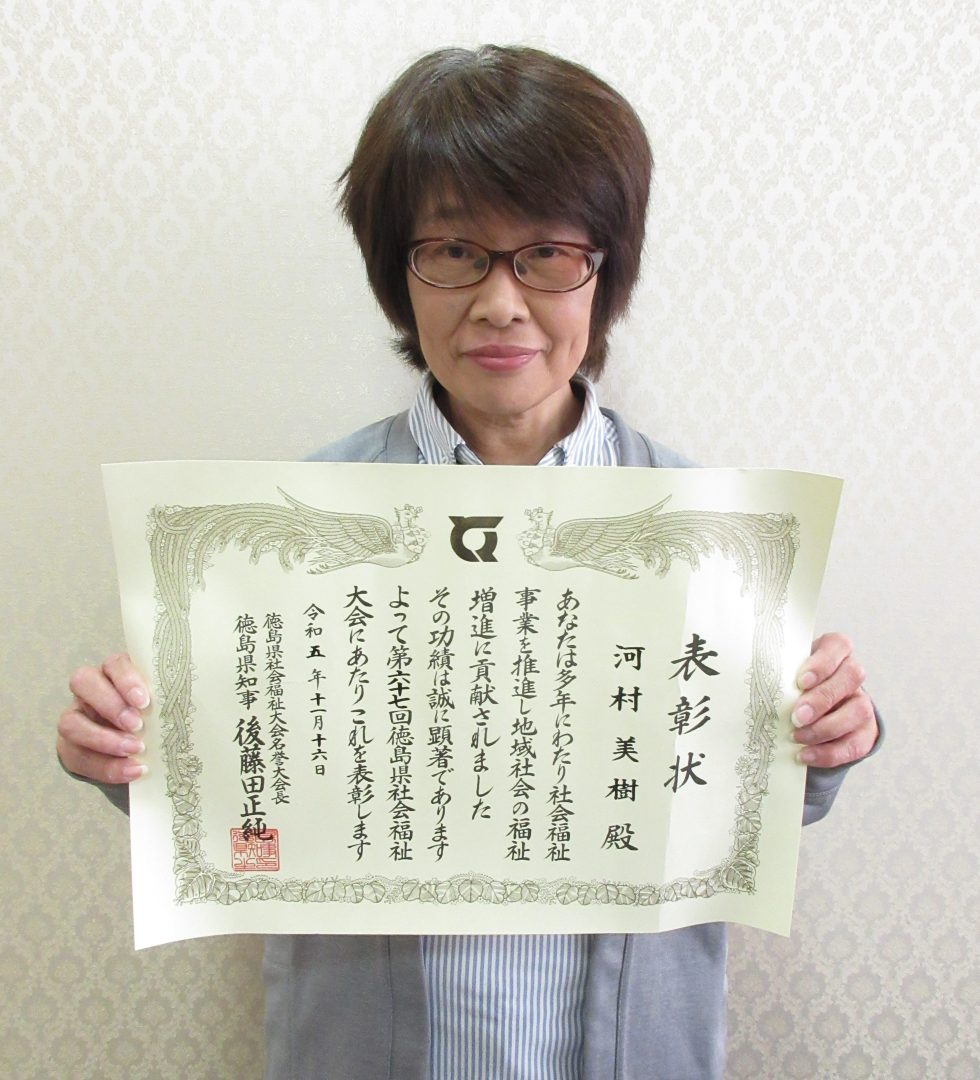 表彰状
河村美樹殿
あなたは多年にわたり社会福祉
事業を推進し地域社会の福祉
増進に貢献されました
その功績は誠に顕著であります
よって第六十七回徳島県社会福祉
大会にあたりこれを表彰します
令和五年十一月十六日
徳島県社会福祉大会名誉大会長
徳島県知事 後藤田正純